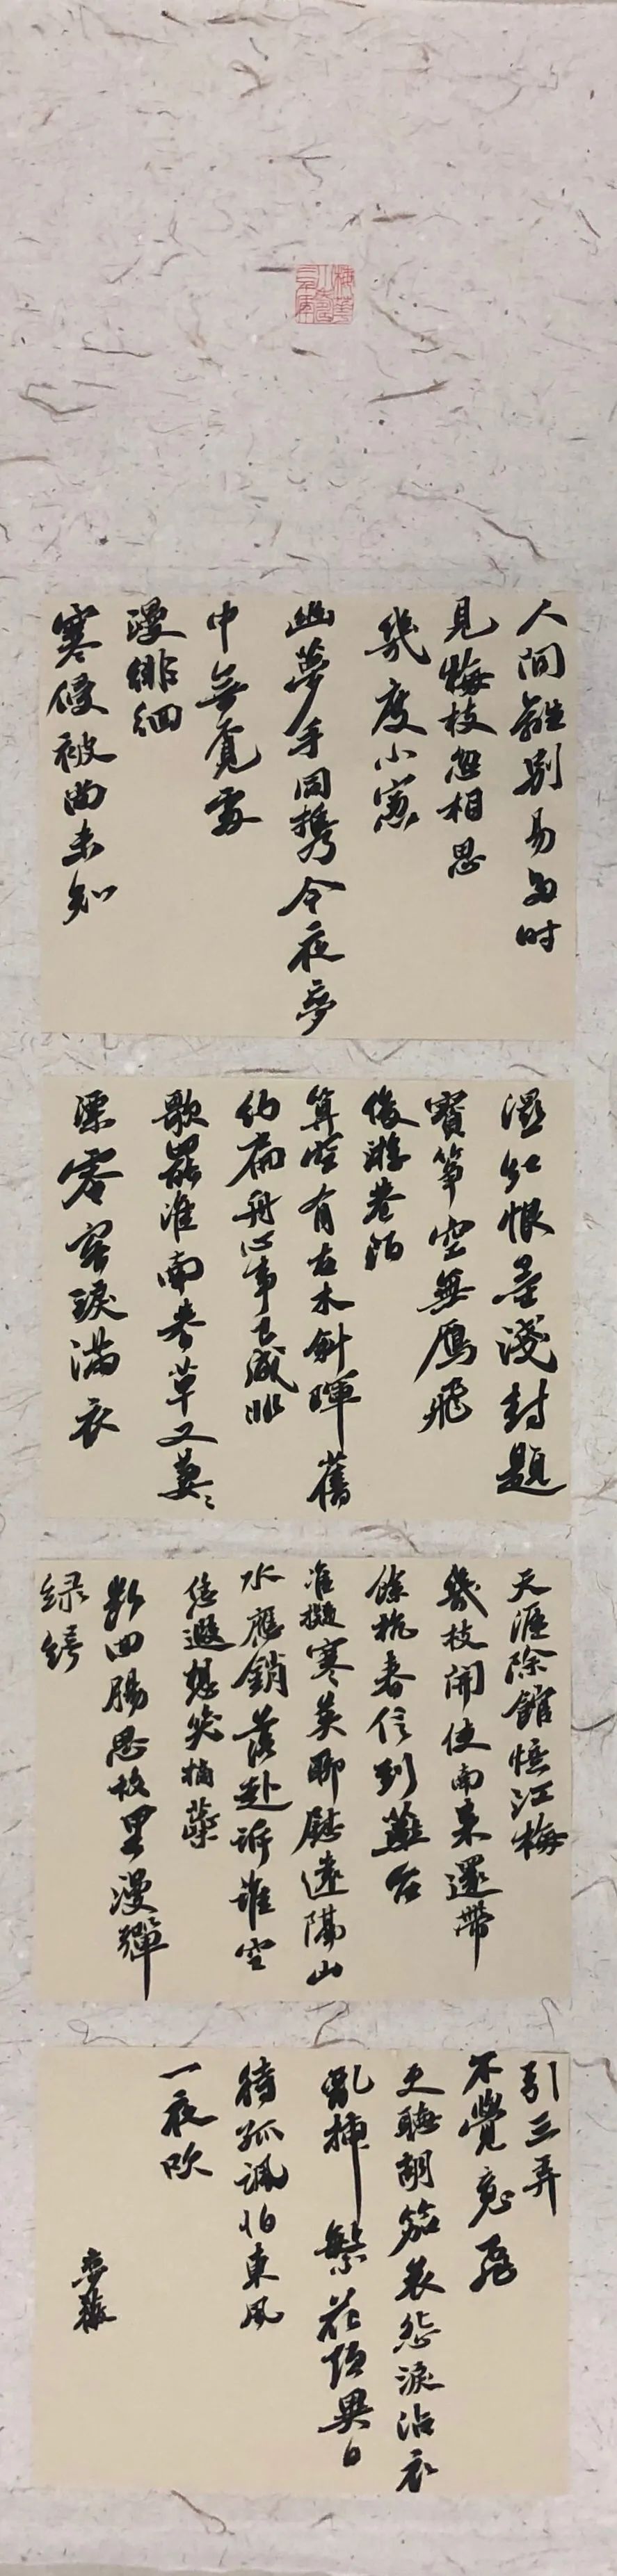 人间離別易多时
見梅枝忽相思
幾度小窓
幽夢手同携今夜夢
中無覓處
漫徘徊
寒侵被尚未知
濕红恨墨淺封題
寶箏空無雁飛
俊游巷陌
算空有古木斜暉舊
约扁舟心事已成非
歌罷淮南春草又萋〻
漂零客淚滿衣
天涯除館憶江梅
幾枝開使南来還帶
餘杭春信到燕台
准擬寒英聊慰遠隔山
水應銷落赴訴誰空
恁遐想笑摘蕊
斷回腸思故里漫彈
绿绮
引三弄
不覺魂飛
更聽胡笳哀怨淚沾衣
亂插繁花須異日
待孤諷怕東風
一夜吹